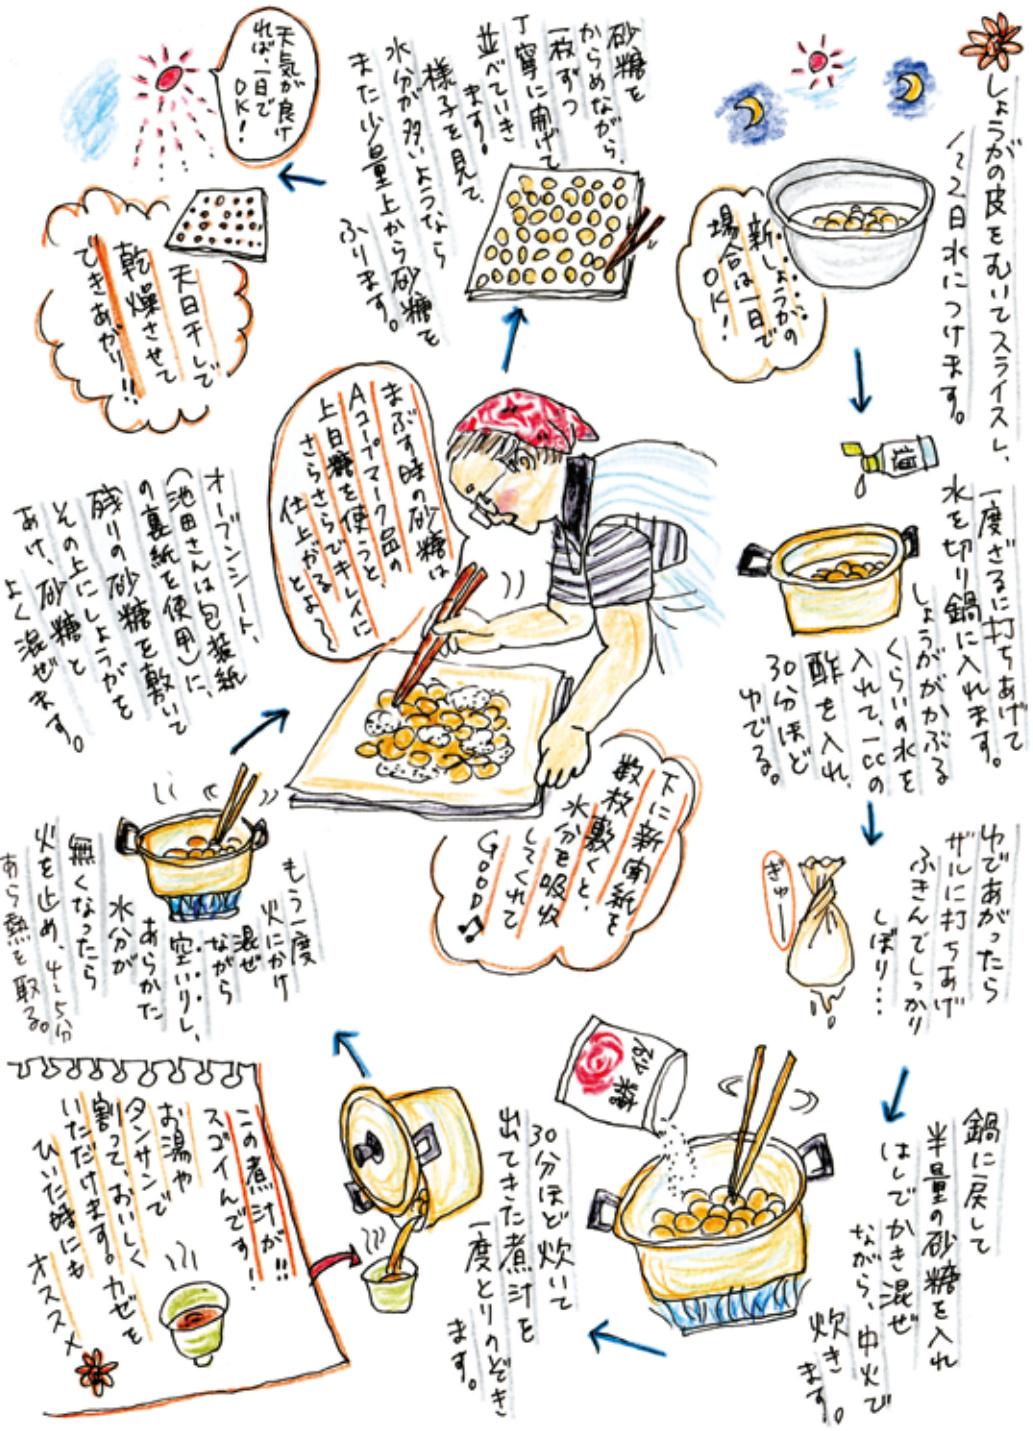 しょうがの皮をむいてスライスし、
1〜2日水につけます。
新しょうがの
場合は一日で
OK!
酢
一度ざるに打ちあげて
水を切り鍋に入れます。
しょうががかぶる
くらいの水を
入れて、一ccの
酢を入れ、
30分ほど
ゆでる。
ゆであがったら
ザルに打ちあげ
ふきんでしっかり
しぼり…
ぎゅー
鍋に戻して
半量の砂糖を入れ
はしでかき混ぜ
ながら、中火で
炊き
ます。
砂糖
30分ほど炊いて
出てきた煮汁を
一度とりのぞき
ます。
この煮汁が!!
スゴイんです!
お湯や
タンサンで
割って、おいしく
いただけます。カゼを
ひいた時にも
オススメ
もう一度
火にかけ
混ぜ
ながら
空いりし、
あらかた
水分が
無くなったら
火を止め、4〜5分
あら熱を取る。
オーブンシート、
(池田さんは包装紙
の裏紙を使用)に、
残りの砂糖を敷いて
その上にしょうがを
あけ、砂糖と
よく混ぜます。
まぶす時の砂糖は
Aコープマーク品の
上白糖を使うと、
さらさらでキレイに
仕上がる
とよ〜
下に新聞紙を
数枚敷くと、
水分を吸収
してくれて
GOOD♪
砂糖を
からめながら、
一枚ずつ
丁寧に広げて
並べていき
ます。
様子を見て、
水分が多いようなら
また少量上から砂糖を
ふります。
天気が良け
れば、一日で
OK!
天日干しで
乾燥させて
できあがり!!